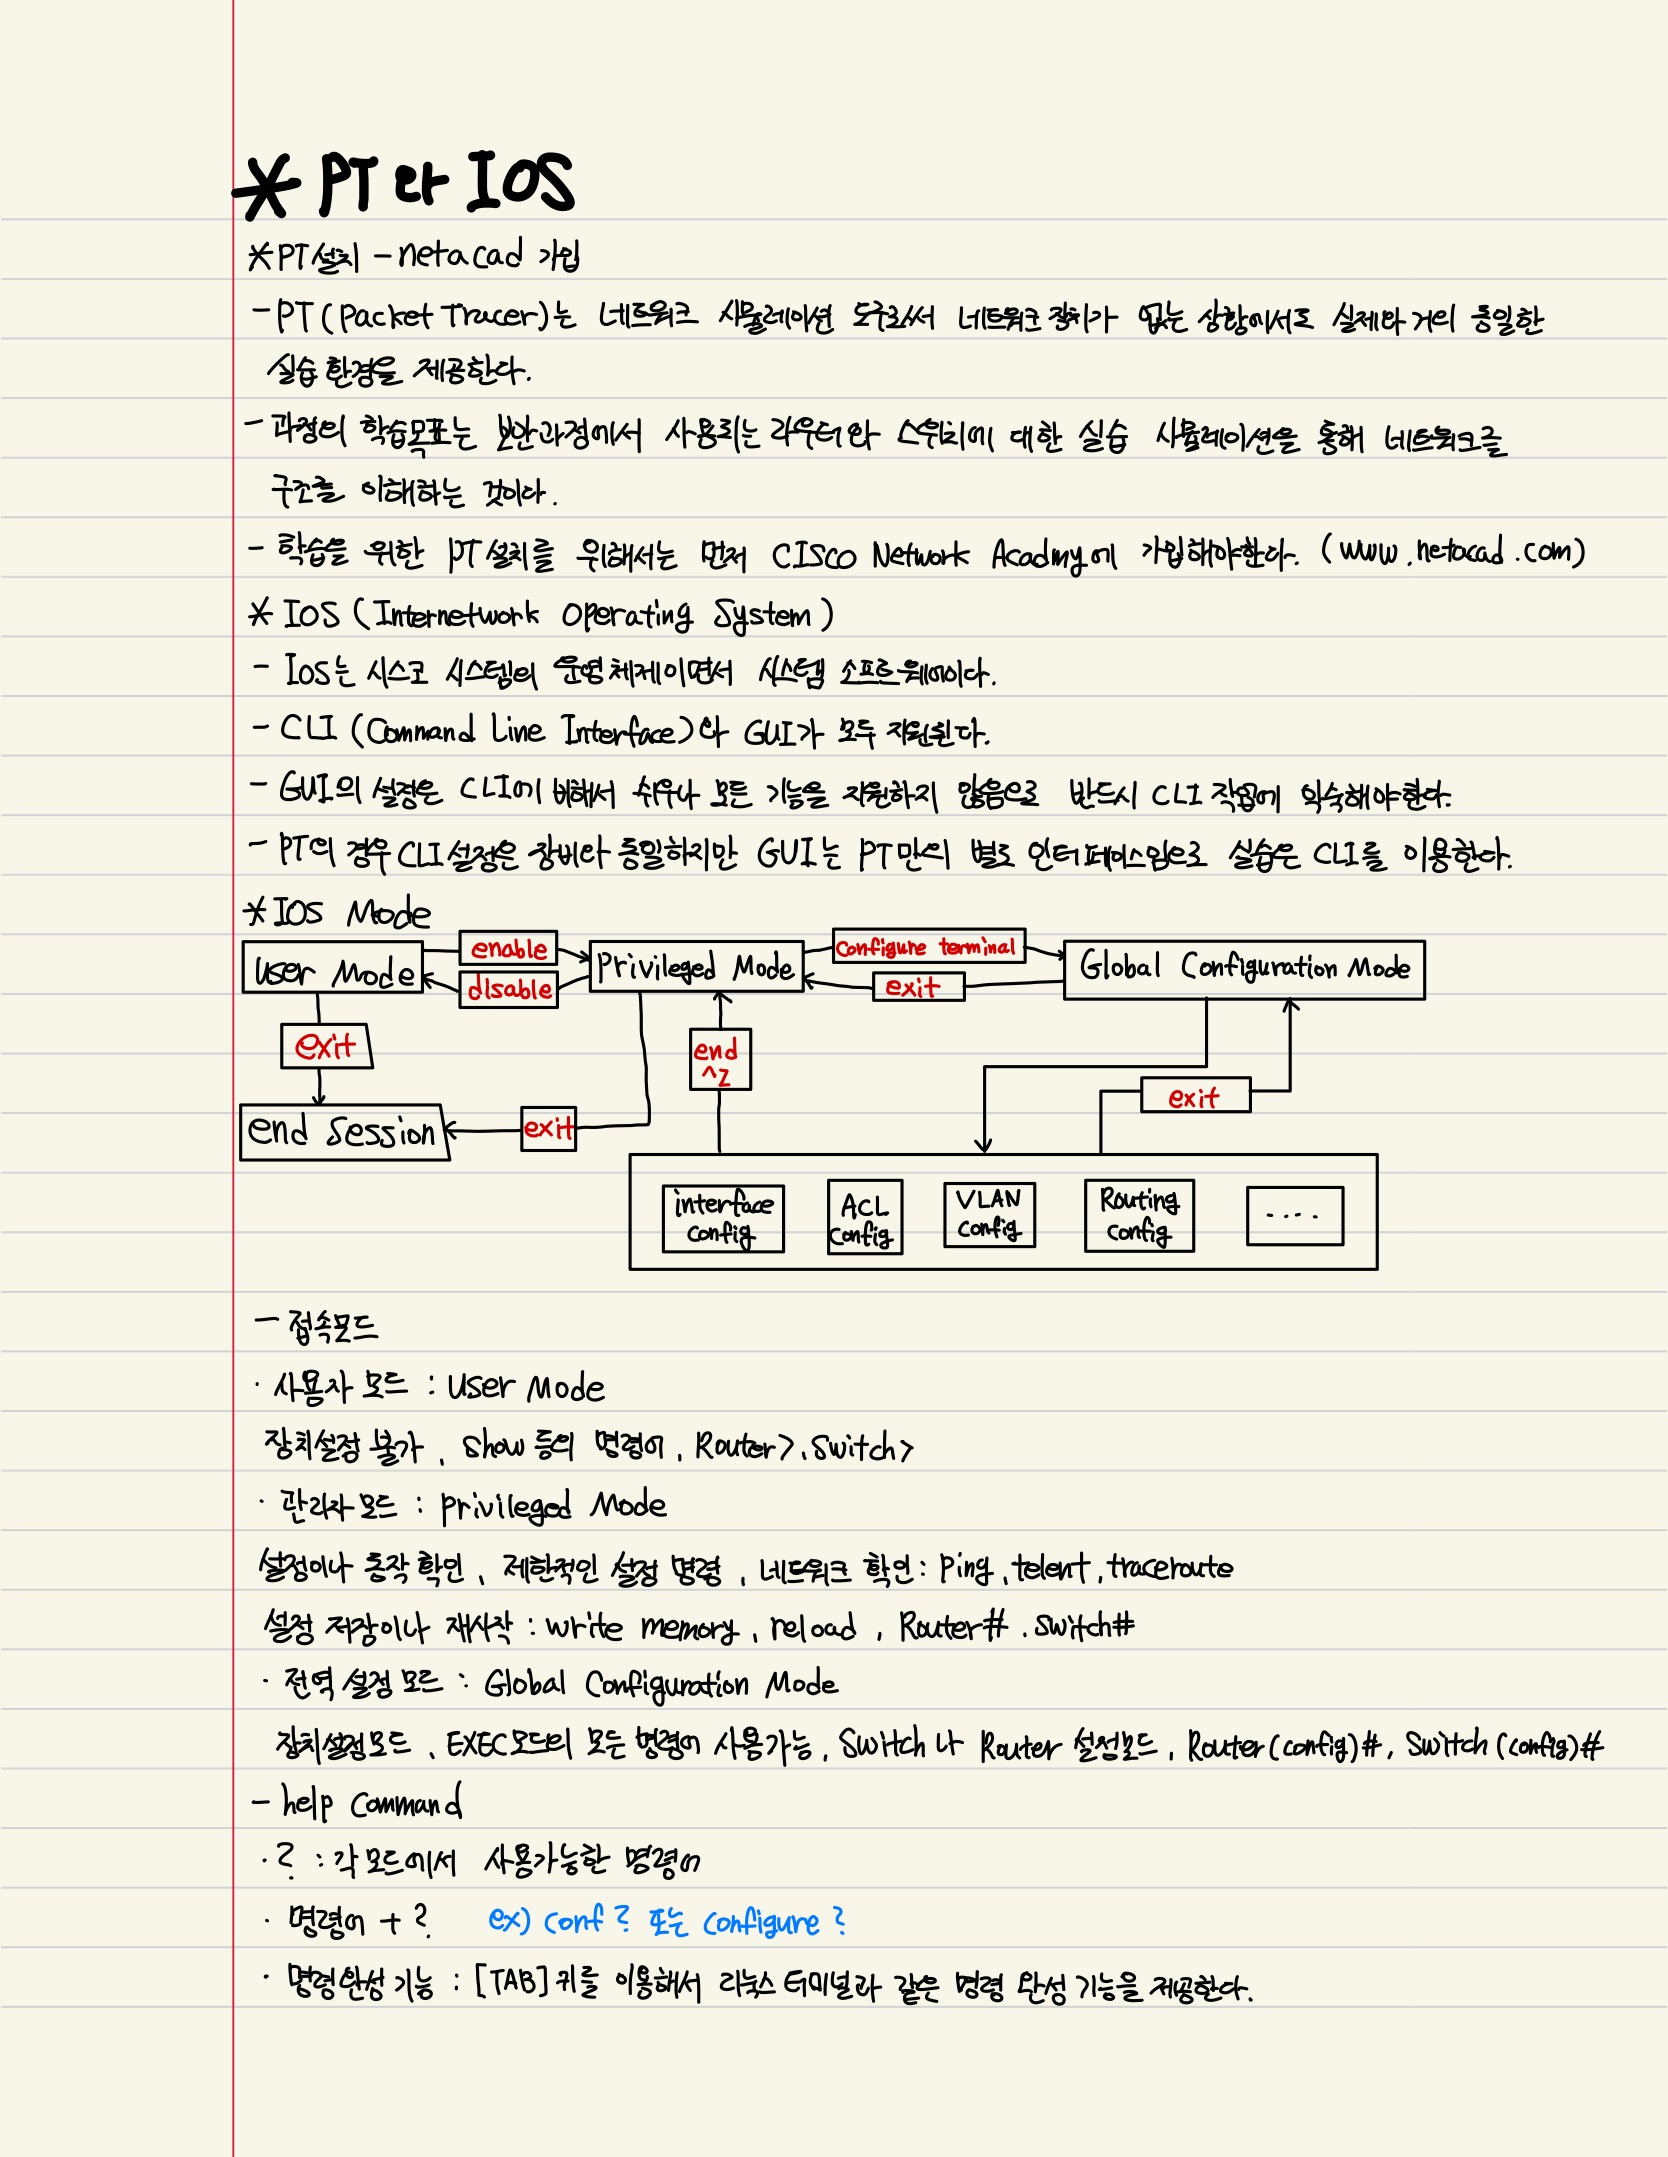 * PT와 IOS
* PT설치 - netacad 가입
- PT (Packet Tracer)는 네트워크 시뮬레이션 도구로써 네트워크 장치가 없는 상황에서도 실제와 거의 동일한
실습 환경을 제공한다.
- 과정의 학습목표는 보안과정에서 사용되는 라우터와 스위치에 대한 실습 시뮬레이션을 통해 네트워크를
구조를 이해하는 것이다.
- 학습을 위한 PT 설치를 위해서는 먼저 CISCO Network Acadmy에 가입해야한다. (www.netacad.com)
* IOS (Internetwork Operating System)
- IOS는 시스코 시스템의 운영체제이면서 시스템 소프트웨어이다.
- CLI (Command Line Interface)와 GUI가 모두 지원된다.
- GUI의 설정은 CLI에 비해서 쉬우나 모든 기능을 지원하지 않음으로 반드시 CLI 작업에 익숙해야한다.
- PT의 경우 CLI 설정은 장비와 동일하지만 GUI는 PT만의 별도 인터페이스임으로 실습은 CLI를 이용한다.
* IOS Mode
enable
configure terminal
User Mode
Privileged Mode
Global Configuration Mode
disable
exit
exit
end
^z
exit
end Session
exit
interface
config
ACL
config
VLAN
config
Routing
config
....
- 접속모드
· 사용자 모드 : User Mode
장치설정 불가, show 등의 명령어, Router>, Switch>
· 관리자 모드 : privileged Mode
설정이나 동작 확인, 제한적인 설정 명령, 네트워크 확인 : Ping, telent, traceroute
설정 저장이나 재시작 : write memory, reload, Router#, switch#
· 전역 설정 모드 : Global Configuration Mode
장치설정모드, EXEC모드의 모든 명령어 사용가능, Switch 나 Router 설정모드, Router(config)#, Switch(config)#
- help Command
· ? : 각 모드에서 사용가능한 명령어
· 명령어 + ? ex) conf ? 또는 configure ?
· 명령완성 기능 : [TAB]키를 이용해서 리눅스 터미널과 같은 명령 완성 기능을 제공한다.